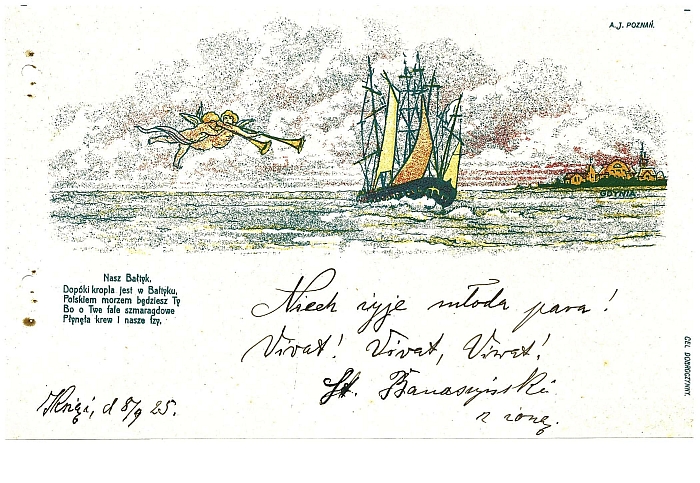 A. J. POZNAŃ.
GDYNIA
Nasz Bałtyk.
Dopóki kropla jest w Bałtyku,
Polskiem morzem będziesz Ty
Bo o Twe fale szmaragdowe
Płynęła krew i nasze łzy.
Niech żyje młoda para!
Vivat! Vivat, Vivat!
St. Banaszyński
z żoną.
d 8/9 25.
CEL DOBROCZYNNY.